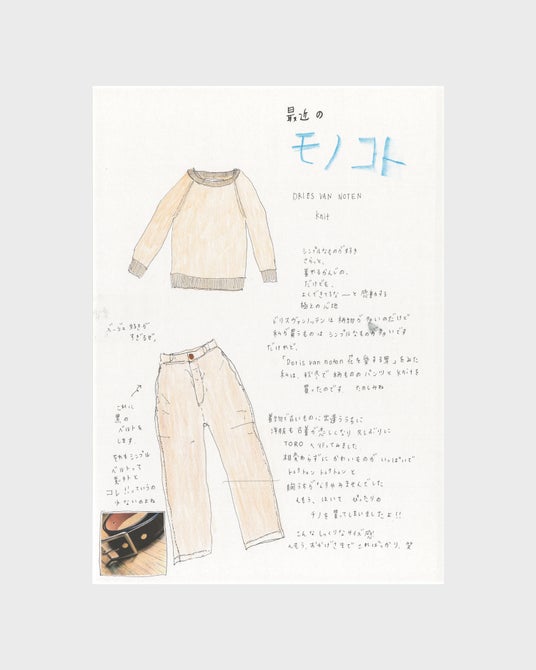 最近の
モノコト
DRIES VAN NOTEN
knit
シンプルなものが好き
さらっと、
着れるかんじの、
だけども、
よくできてるなーと感動する
極上の心地
ドリスヴァンノッテンは柄物が多いのだけど
私が買うものはシンプルなものが多いです
だけれど、
「Dries van noten 花を愛する男」をみた
私は、秋冬で柄もののパンツとknitを
買ったのです たのしみね
ベージュ好きが
すぎるぜ。
着物で古いものに出逢ううちに
洋服も古着が恋しくなり 久しぶりに
TOROへ行ってみました
相変わらずにかわいいものがいっぱいで
トゥトゥントゥトゥンと
胸うちがなりやみませんでした
くもう、はいて ぴったりの
チノを買ってしまいましたよ!!
こんなしっくりなサイズ感
くもう、おかげさまで こればっかり。笑
これに
黒の
ベルトを
します
それもシンプル
ベルトって
意外と
コレ!!っていうの
少ないのよね